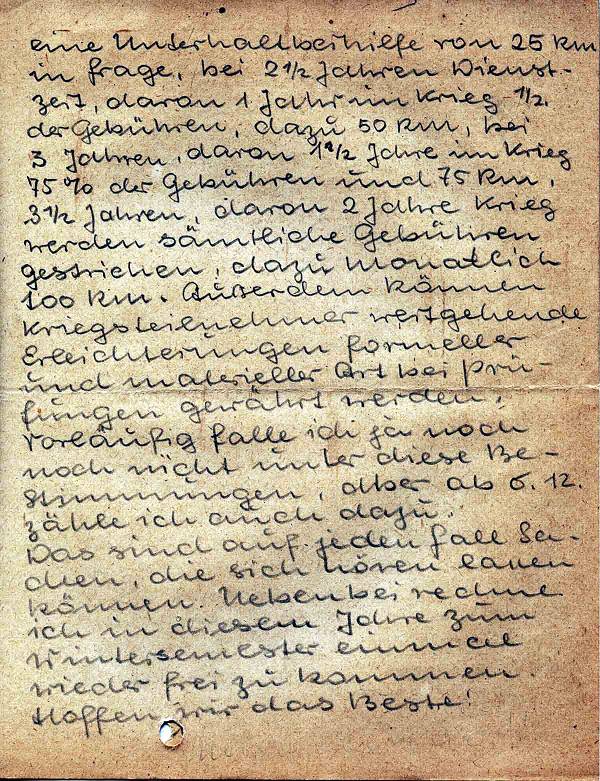 eine Unterhaltbeihilfe von 25 Rm
in frage, bei 2 1/2 Jahren Dienst-
zeit, davon 1 Jahr im Krieg 1/2.
der Gebühren, dazu 50 Rm, bei
3 Jahren, davon 1 1/2 Jahre im Krieg
75% der Gebühren und 75 Rm,
3 1/2 Jahren, davon 2 Jahre Krieg
werden sämtliche Gebühren
gestrichen, dazu monatlich
100 Rm. Außerdem können
Kriegsteilnehmer weitgehende
Erleichterungen formeller
und materieller Art bei Prü-
fungen gewährt werden.
Vorläufig falle ich ja noch
noch nicht unter diese Be-
stimmungen, aber ab 6. 12.
zähle ich auch dazu.
Das sind auf jeden fall Sa-
chen, die sich hören lassen
können. Nebenbei rechne
ich in diesem Jahre zum
Wintersemester einmal
wieder frei zu kommen.
Hoffen wir das Beste!